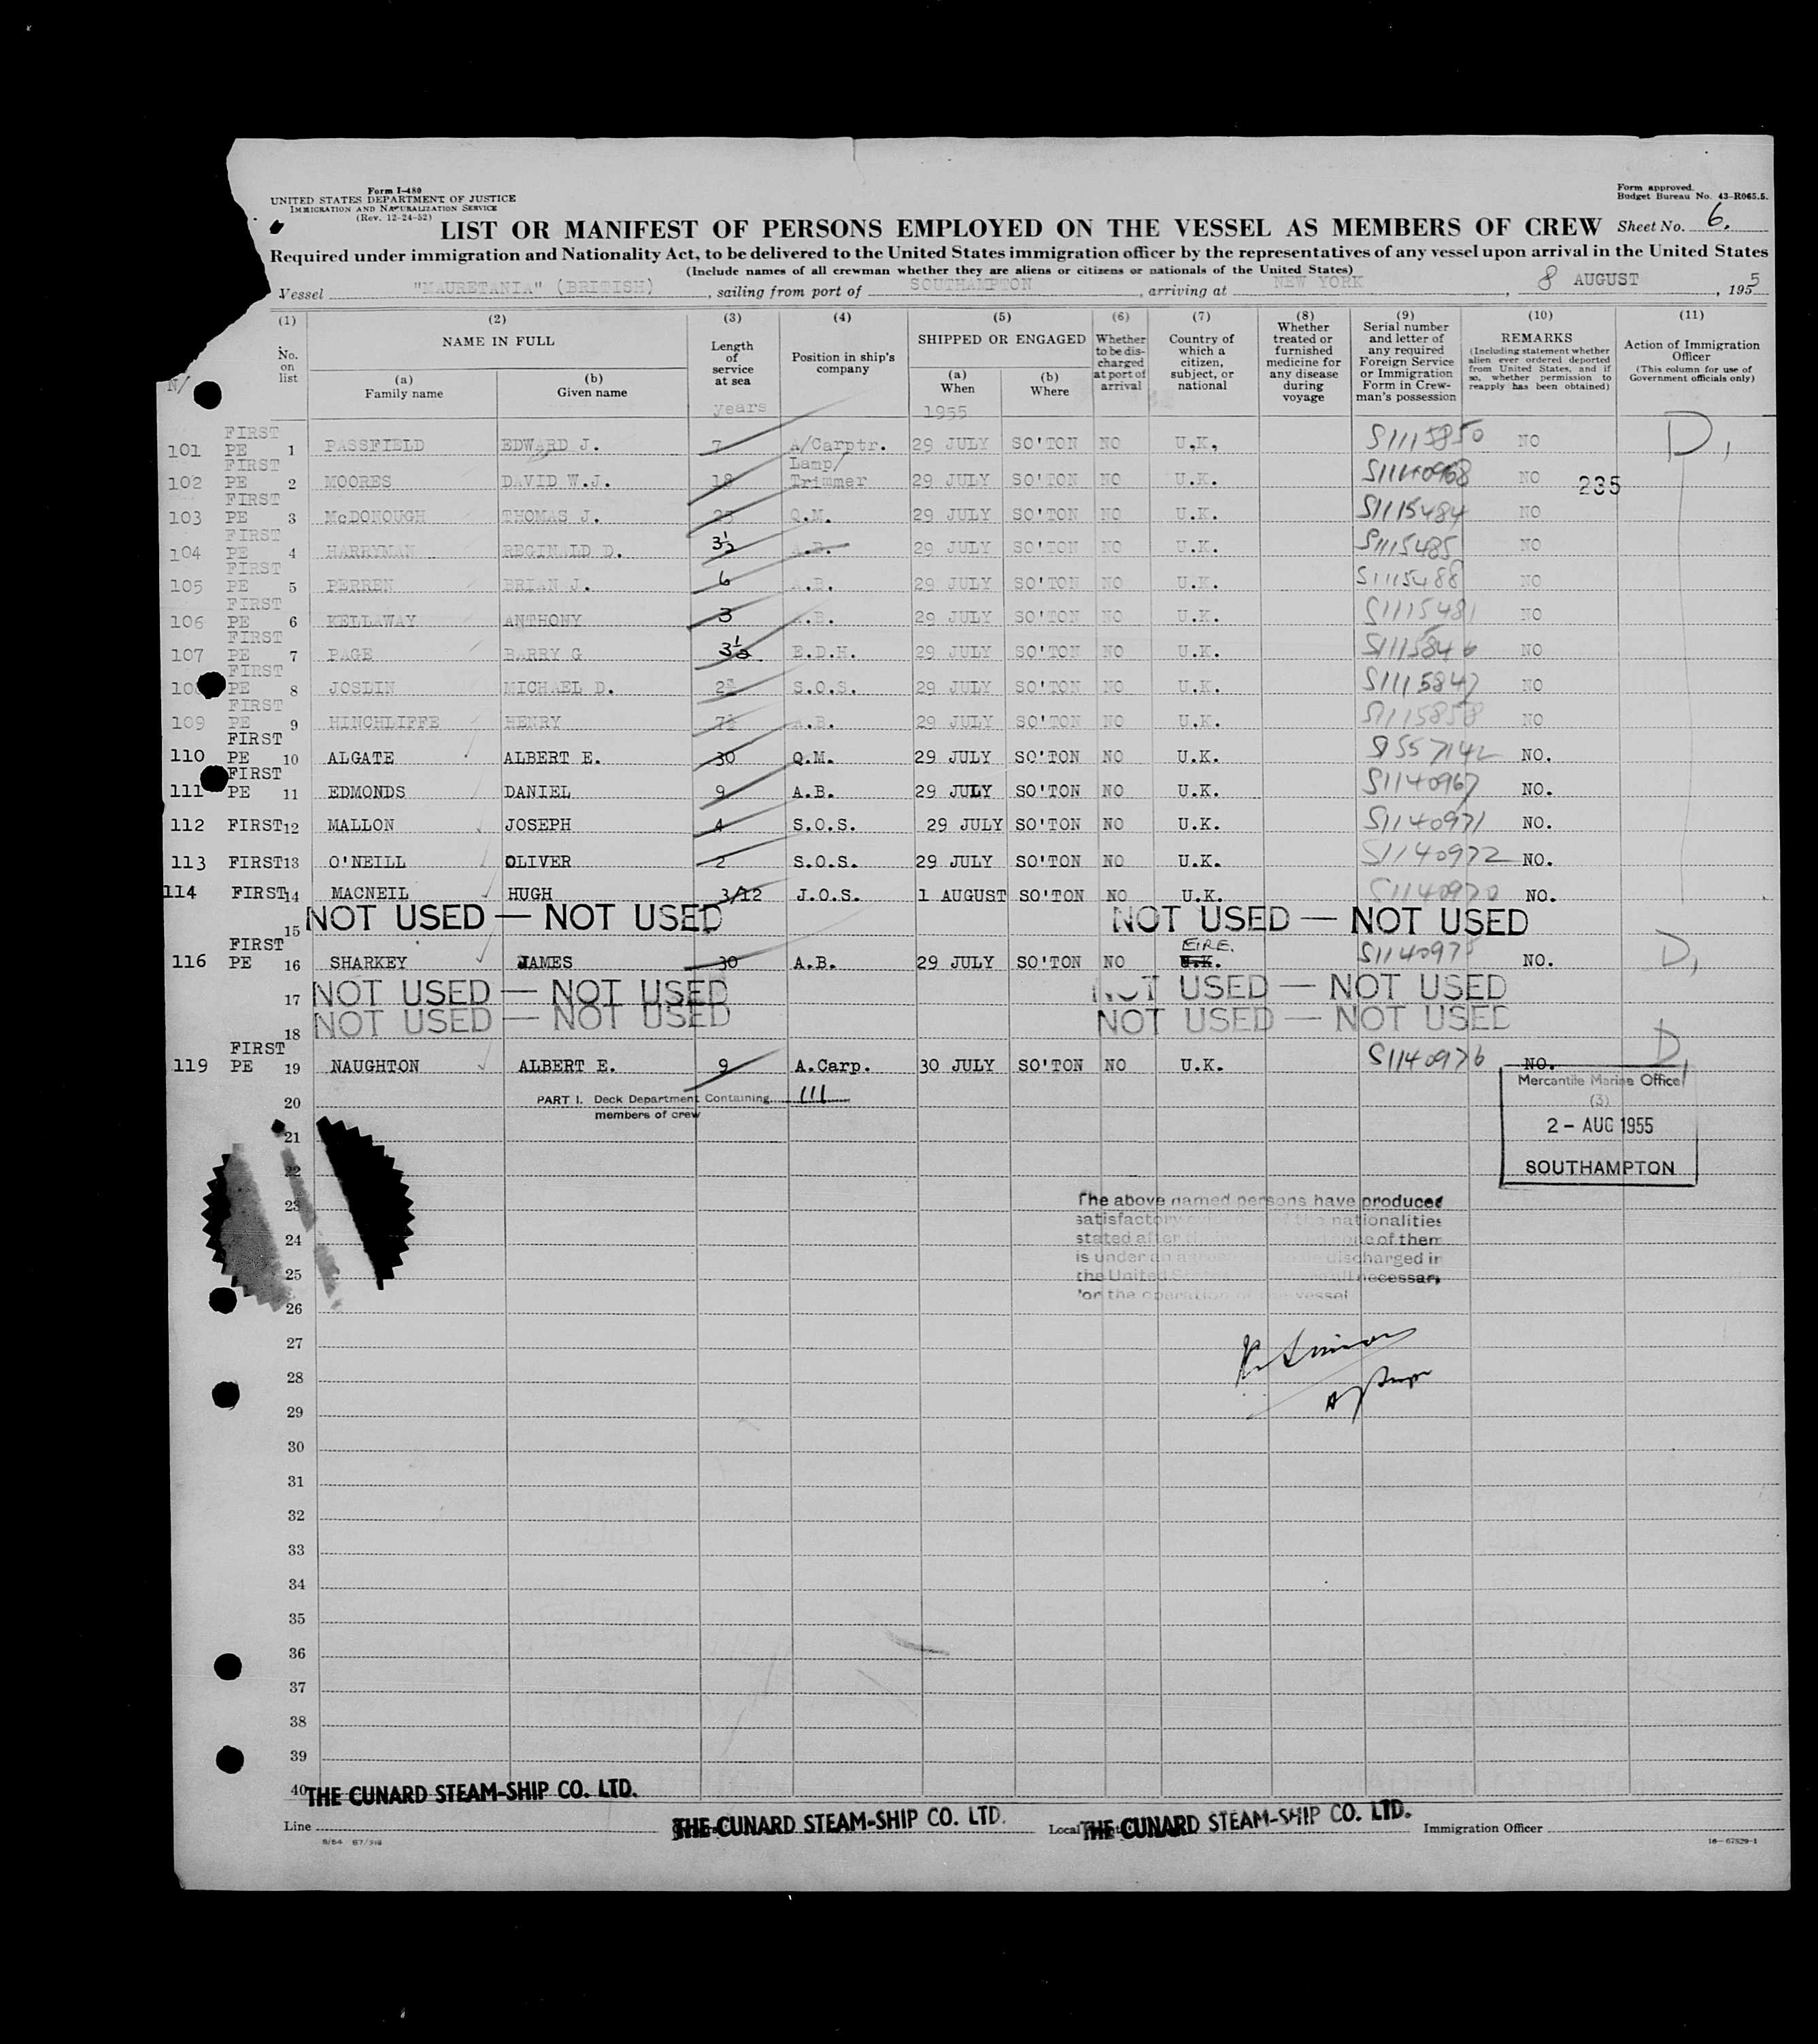 Form I-480
UNITED STATES DEPARTMENT OF JUSTICE
IMMIGRATION AND NATURALIZATION SERVICE
(Rev. 12-24-52)
Form approved.
Budget Bureau No. 43-R065.5.
LIST OR MANIFEST OF PERSONS EMPLOYED ON THE VESSEL AS MEMBERS OF CREW Sheet No. 6.
Required under immigration and Nationality Act, to be delivered to the United States immigration officer by the representatives of any vessel upon arrival in the United States
(Include names of all crewman whether they are aliens or citizens or nationals of the United States)
Vessel "MAURETANIA" (BRITISH), sailing from port of SOUTHAMPTON, arriving at NEW YORK, 8 AUGUST, 1955
(1) (2) (3) (4) (5) (6) (7) (8) (9) (10) (11)
No. on list
NAME IN FULL
(a) Family name
(b) Given name
Length of service at sea
Position in ship's company
SHIPPED OR ENGAGED
(a) When
(b) Where
Whether to be discharged at port of arrival
Country of which a citizen, subject, or national
Whether treated or furnished medicine for any disease during voyage
Serial number and letter of any required Foreign Service or Immigration Form in Crewman's possession
REMARKS
(Including statement whether alien ever ordered deported from United States, and if so, whether permission to reapply has been obtained)
Action of Immigration Officer
(This column for use of Government officials only)
years 1955
101 FIRST PE 1 PASSFIELD EDWARD J. 7 A/Carptr. 29 JULY SO'TON NO U.K, S1115850 NO D,
102 FIRST PE 2 MOORES DAVID W.J. 18 Lamp/ Trimmer 29 JULY SO'TON NO U.K. S1140968 NO 235
103 FIRST PE 3 McDONOUGH THOMAS J. 25 Q.M. 29 JULY SO'TON NO U.K. S1115484 NO
104 FIRST PE 4 HARRYMAN REGINALD D. 3½ A.B. 29 JULY SO'TON NO U.K. S1115485 NO
105 FIRST PE 5 PERREN BRIAN J. 6 A.B. 29 JULY SO'TON NO U.K. S1115488 NO
106 FIRST PE 6 KELLAWAY ANTHONY 3 A.B. 29 JULY SO'TON NO U.K. S1115481 NO
107 FIRST PE 7 PAGE BARRY G 3½ E.D.H. 29 JULY SO'TON NO U.K. S1115846 NO
FIRST PE 8 JOSLIN MICHAEL D. S.O.S. 29 JULY SO'TON NO U.K. S1115847 NO
109 FIRST PE 9 HINCHLIFFE HENRY 7½ A.B. 29 JULY SO'TON NO U.K. S1115858 NO
110 FIRST PE 10 ALGATE ALBERT E. 30 Q.M. 29 JULY SO'TON NO U.K. S557142 NO.
111 FIRST PE 11 EDMONDS DANIEL 9 A.B. 29 JULY SO'TON NO U.K. S1140967 NO.
112 FIRST 12 MALLON JOSEPH 4 S.O.S. 29 JULY SO'TON NO U.K. S1140971 NO.
113 FIRST 13 O'NEILL OLIVER 2 S.O.S. 29 JULY SO'TON NO U.K. S1140972 NO.
114 FIRST 14 MACNEIL HUGH 3/12 J.O.S. 1 AUGUST SO'TON NO U.K. S1140970 NO.
15 NOT USED — NOT USED NOT USED — NOT USED
116 FIRST PE 16 SHARKEY JAMES 30 A.B. 29 JULY SO'TON NO EIRE. U.K. S1140975 NO. D,
17 NOT USED — NOT USED NOT USED — NOT USED
18 NOT USED — NOT USED NOT USED — NOT USED
119 FIRST PE 19 NAUGHTON ALBERT E. 9 A.Carp. 30 JULY SO'TON NO U.K. S1140976 NO. D,
20 PART I. Deck Department Containing 111
members of crew
Mercantile Marine Office
(3)
2 - AUG 1955
SOUTHAMPTON
21
22
23
24
25
26
The above named persons have produced
satisfactory of the nationalities
stated after of them
is under an discharged in
the United States all necessary
for the operation of vessel
27
28
29
30
31
32
33
34
35
36
37
38
39
40 THE CUNARD STEAM-SHIP CO. LTD.
Line THE CUNARD STEAM-SHIP CO. LTD. Local THE CUNARD STEAM-SHIP CO. LTD. Immigration Officer
16—67529-1